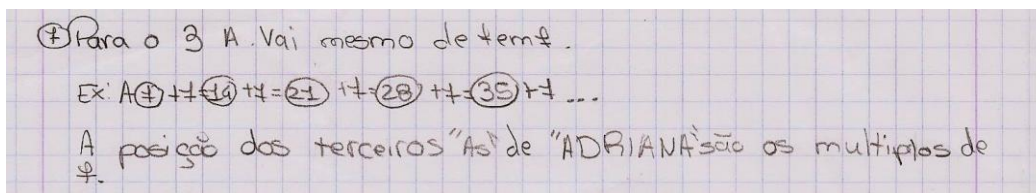 ⑦ Para o 3 A. Vai mesmo de tem 7.
Ex: A⑦ +7=⑭ +7=㉑ +7=㉘ +7=㉟ +7 ...
A posição dos terceiros "As" de "ADRIANA" são os multiplos de
7.